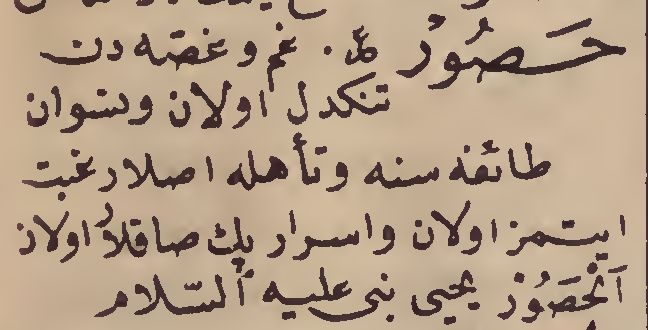 حَصُورْ عر غم و غصّه دن
تنكدل اولان ونسوان
طائفه سنه وتأهله اصلا رغبت
ايتمز اولان واسرار پك صاقلار اولان
اَلْحَصُورْ يحيى نبى عليه السّلام